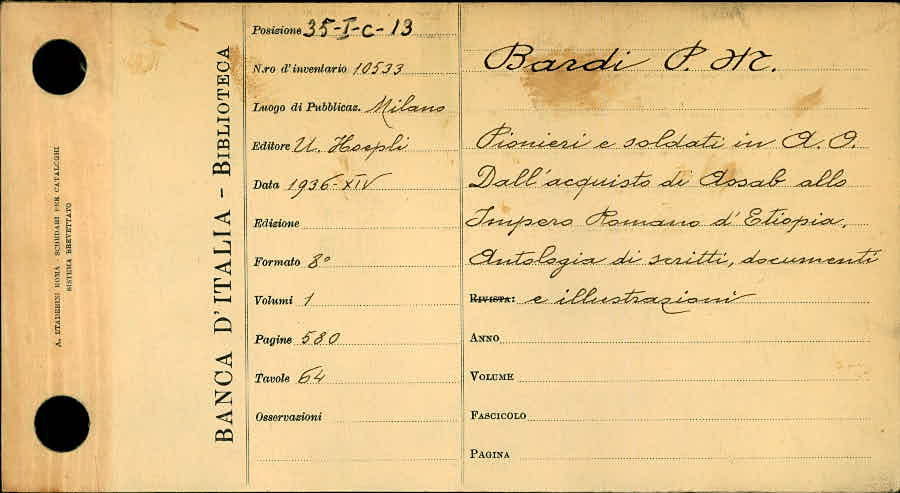 A. STADERINI ROMA - SCHEDARI PER CATALOGHI
SISTEMA BREVETTATO
BANCA D'ITALIA - BIBLIOTECA
Posizione 35-I-c-13
N.ro d'inventario 10533
Luogo di Pubblicaz. Milano
Editore U. Hoepli
Data 1936-XIV
Edizione
Formato 8°
Volumi 1
Pagine 580
Tavole 64
Osservazioni
Bardi P. M.
Pionieri e soldati in A. O.
Dall'acquisto di Assab allo
Impero Romano d'Etiopia.
Antologia di scritti, documenti
RIVISTA: e illustrazioni
ANNO
VOLUME
FASCICOLO
PAGINA